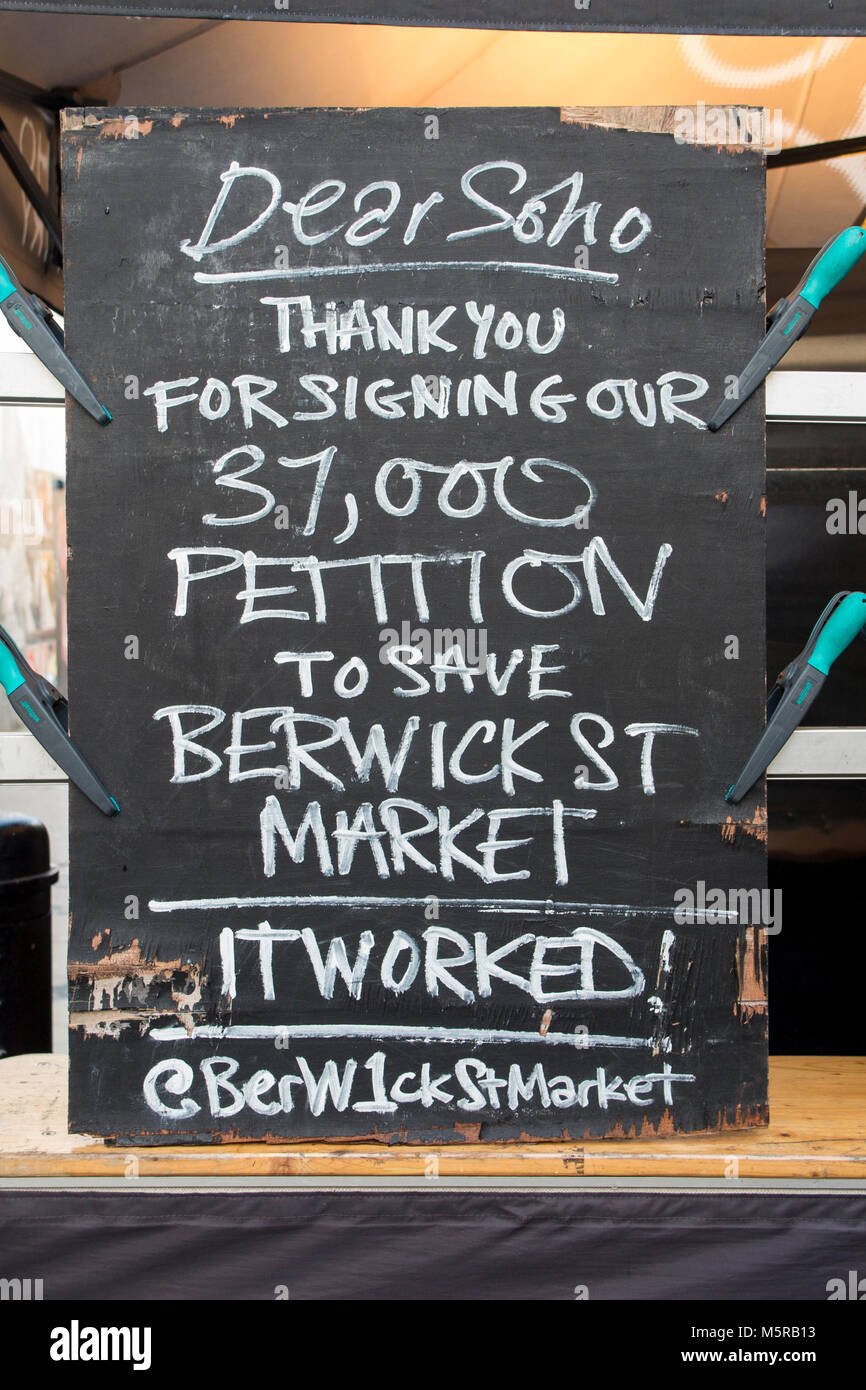 Dear Soho
THANK YOU
FOR SIGNING OUR
37,000
PETITION
TO SAVE
BERWICK ST
MARKET
IT WORKED!
@BerW1ckStMarket
alamy
Image ID: M5RB13
www.alamy.com